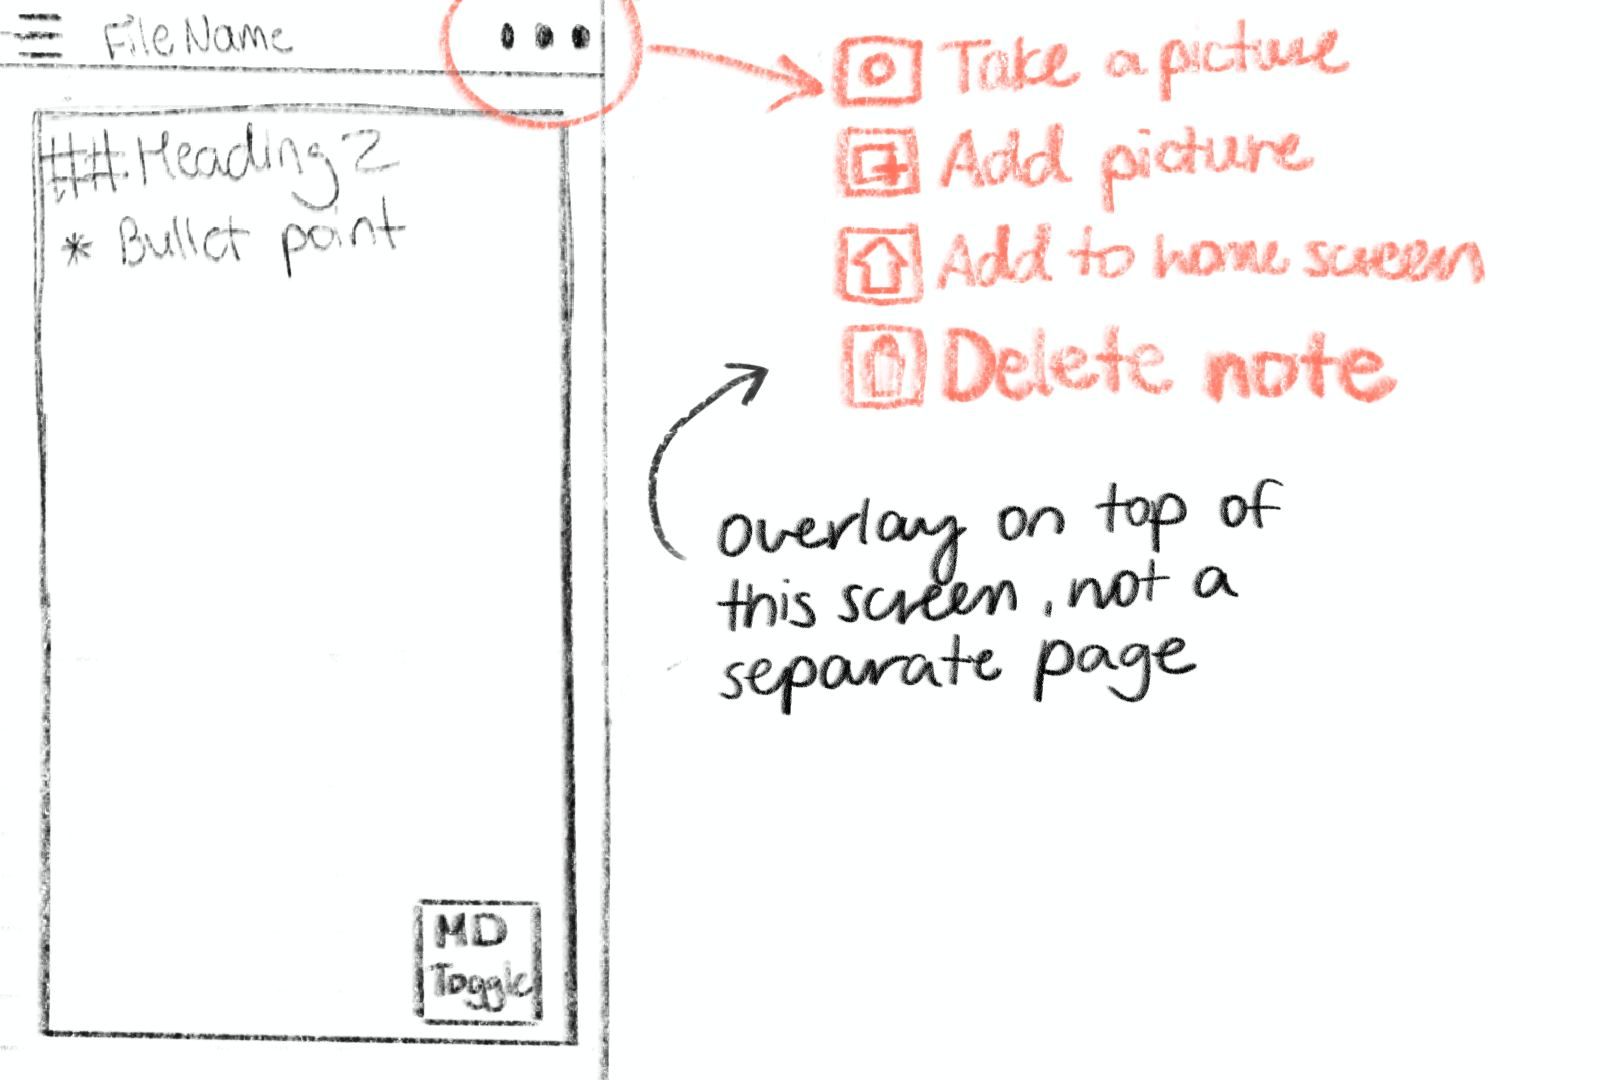 FileName
## Heading 2
* Bullet point
MD
Toggle
Take a picture
Add picture
Add to home screen
Delete note
overlay on top of
this screen, not a
separate page